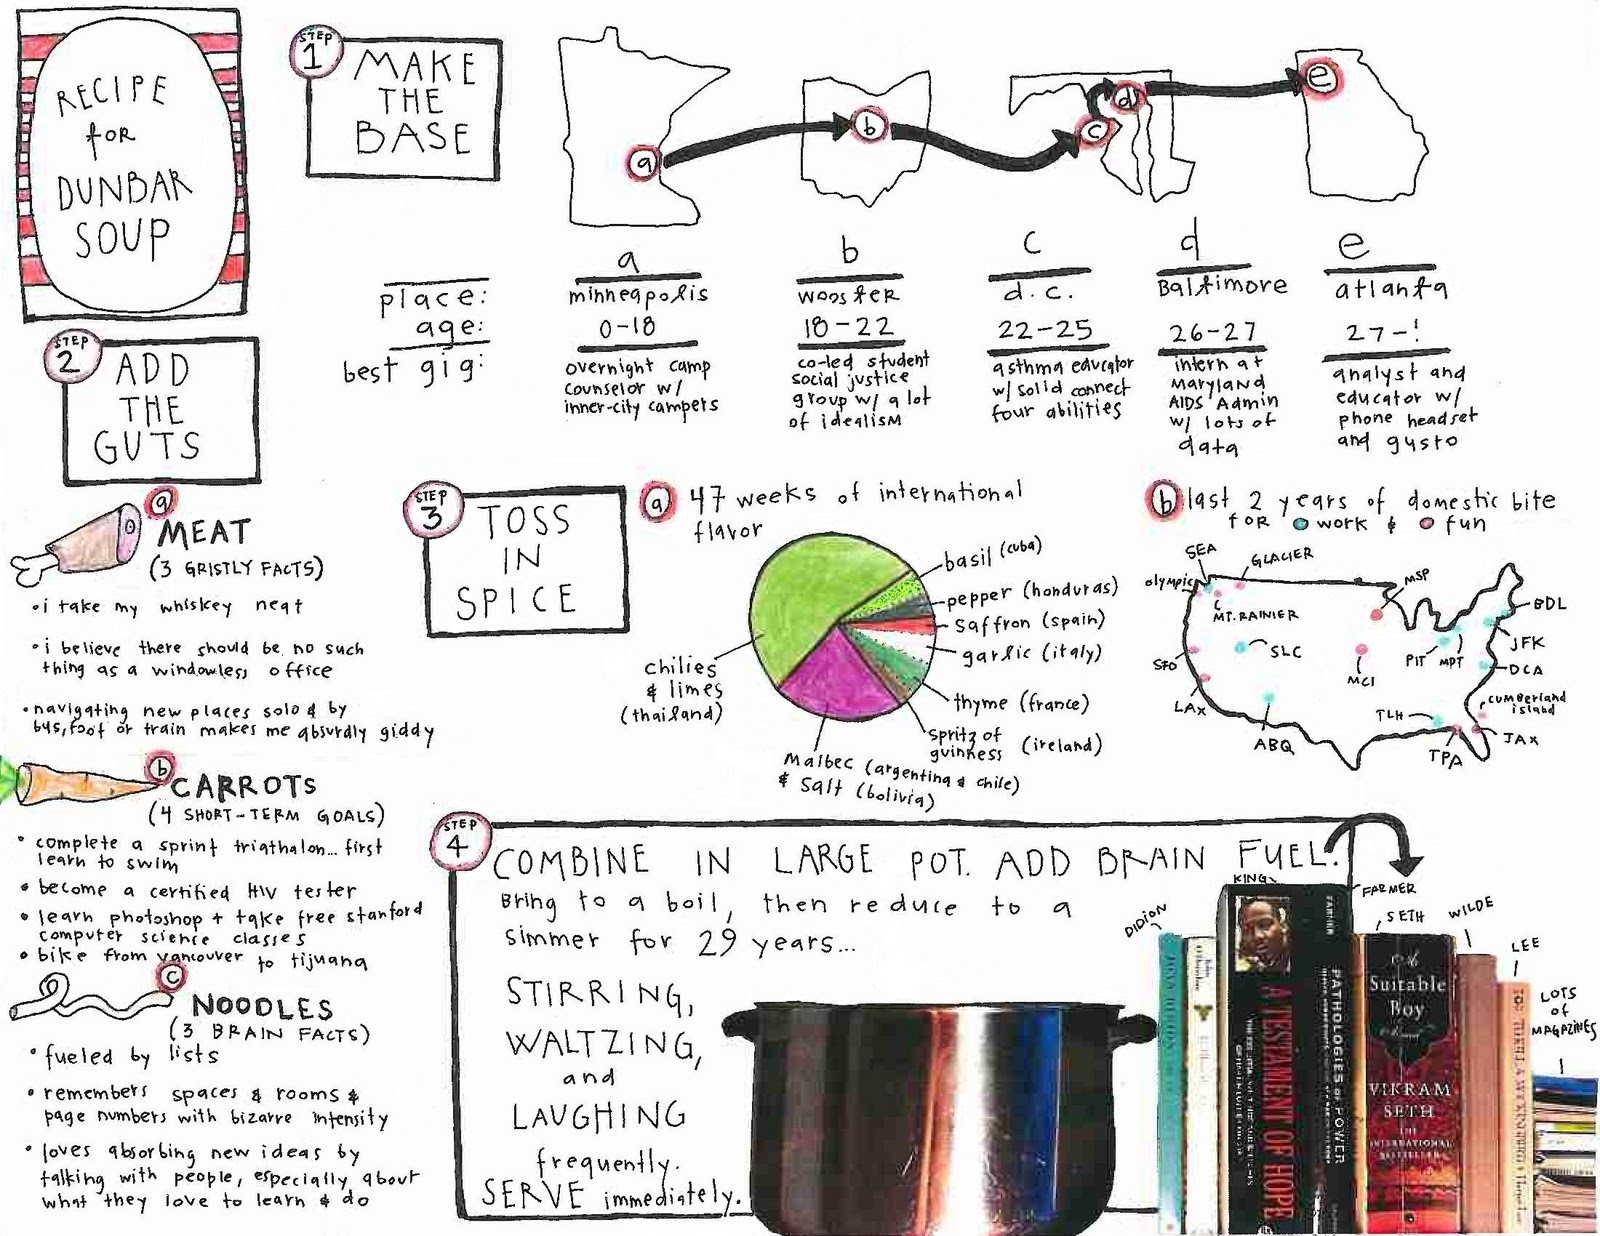 RECIPE
for
DUNBAR
SOUP
STEP
1
MAKE
THE
BASE
a
b
c
d
e
a
b
c
d
e
place:
minneapolis
wooster
d.c.
Baltimore
atlanta
age:
0-18
18-22
22-25
26-27
27-!
best gig:
overnight camp
counselor w/
inner-city campers
co-led student
social justice
group w/ a lot
of idealism
asthma educator
w/ solid connect
four abilities
intern at
Maryland
AIDS Admin
w/ lots of
data
analyst and
educator w/
phone headset
and gusto
STEP
2
ADD
THE
GUTS
a
MEAT
(3 GRISTLY FACTS)
• i take my whiskey neat
• i believe there should be no such
thing as a windowless office
• navigating new places solo & by
bus, foot or train makes me absurdly giddy
b
CARROTS
(4 SHORT-TERM GOALS)
• complete a sprint triathalon... first
learn to swim
• become a certified HIV tester
• learn photoshop + take free stanford
computer science classes
• bike from vancouver to tijuana
c
NOODLES
(3 BRAIN FACTS)
• fueled by lists
• remembers spaces & rooms &
page numbers with bizarre intensity
• loves absorbing new ideas by
talking with people, especially about
what they love to learn & do
STEP
3
TOSS
IN
SPICE
a
47 weeks of international
flavor
basil (cuba)
pepper (honduras)
saffron (spain)
garlic (italy)
thyme (france)
spritz of
guinness (ireland)
Malbec (argentina & chile)
& salt (bolivia)
chilies
& limes
(thailand)
b
last 2 years of domestic bite
FOR work & fun
SEA
GLACIER
olympic
MT. RAINIER
MSP
BDL
JFK
SLC
PIT
MPT
DCA
SFO
MCI
LAX
cumberland
island
TLH
ABQ
TPA
JAX
STEP
4
COMBINE IN LARGE POT. ADD BRAIN FUEL.
Bring to a boil, then reduce to a
simmer for 29 years...
STIRRING,
WALTZING,
and
LAUGHING
frequently.
SERVE immediately.
DIDION
KING
FARMER
SETH
WILDE
LEE
LOTS
of
MAGAZINES
A TESTAMENT OF HOPE
FARMER
PATHOLOGIES of POWER
A
Suitable
Boy
VIKRAM
SETH
THE
INTERNATIONAL
BESTSELLER